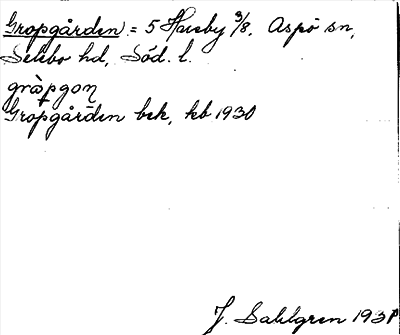 Gropgården = 5 Husby 3/8. Aspö sn,
Selebo hd, Söd. l.
gràpgo̧n
Gropgården bek, kb 1930
J. Sahlgren 193